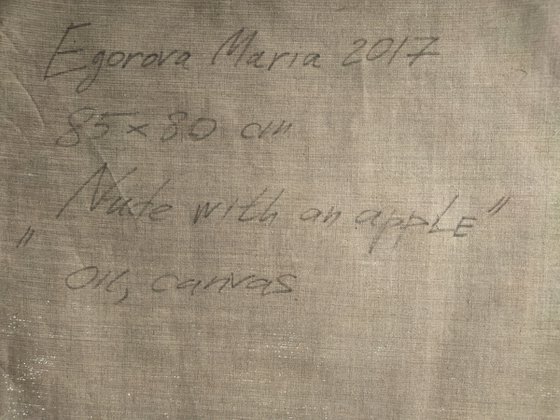 Egorova Maria 2017
85 x 80 cm
"Nude with an apple"
Oil, canvas.